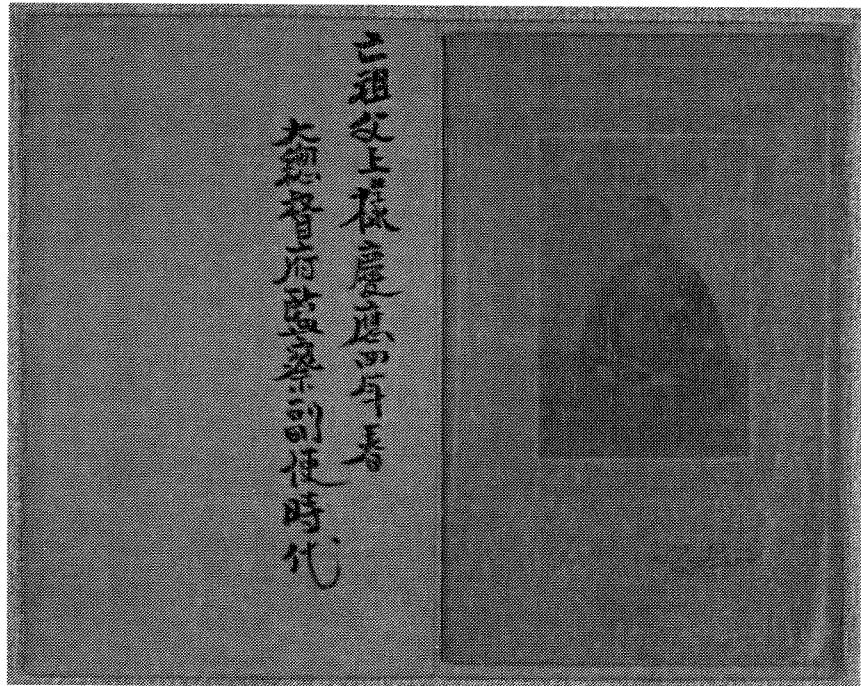 亡祖父上様慶應四年春
大總督府監察副使時代